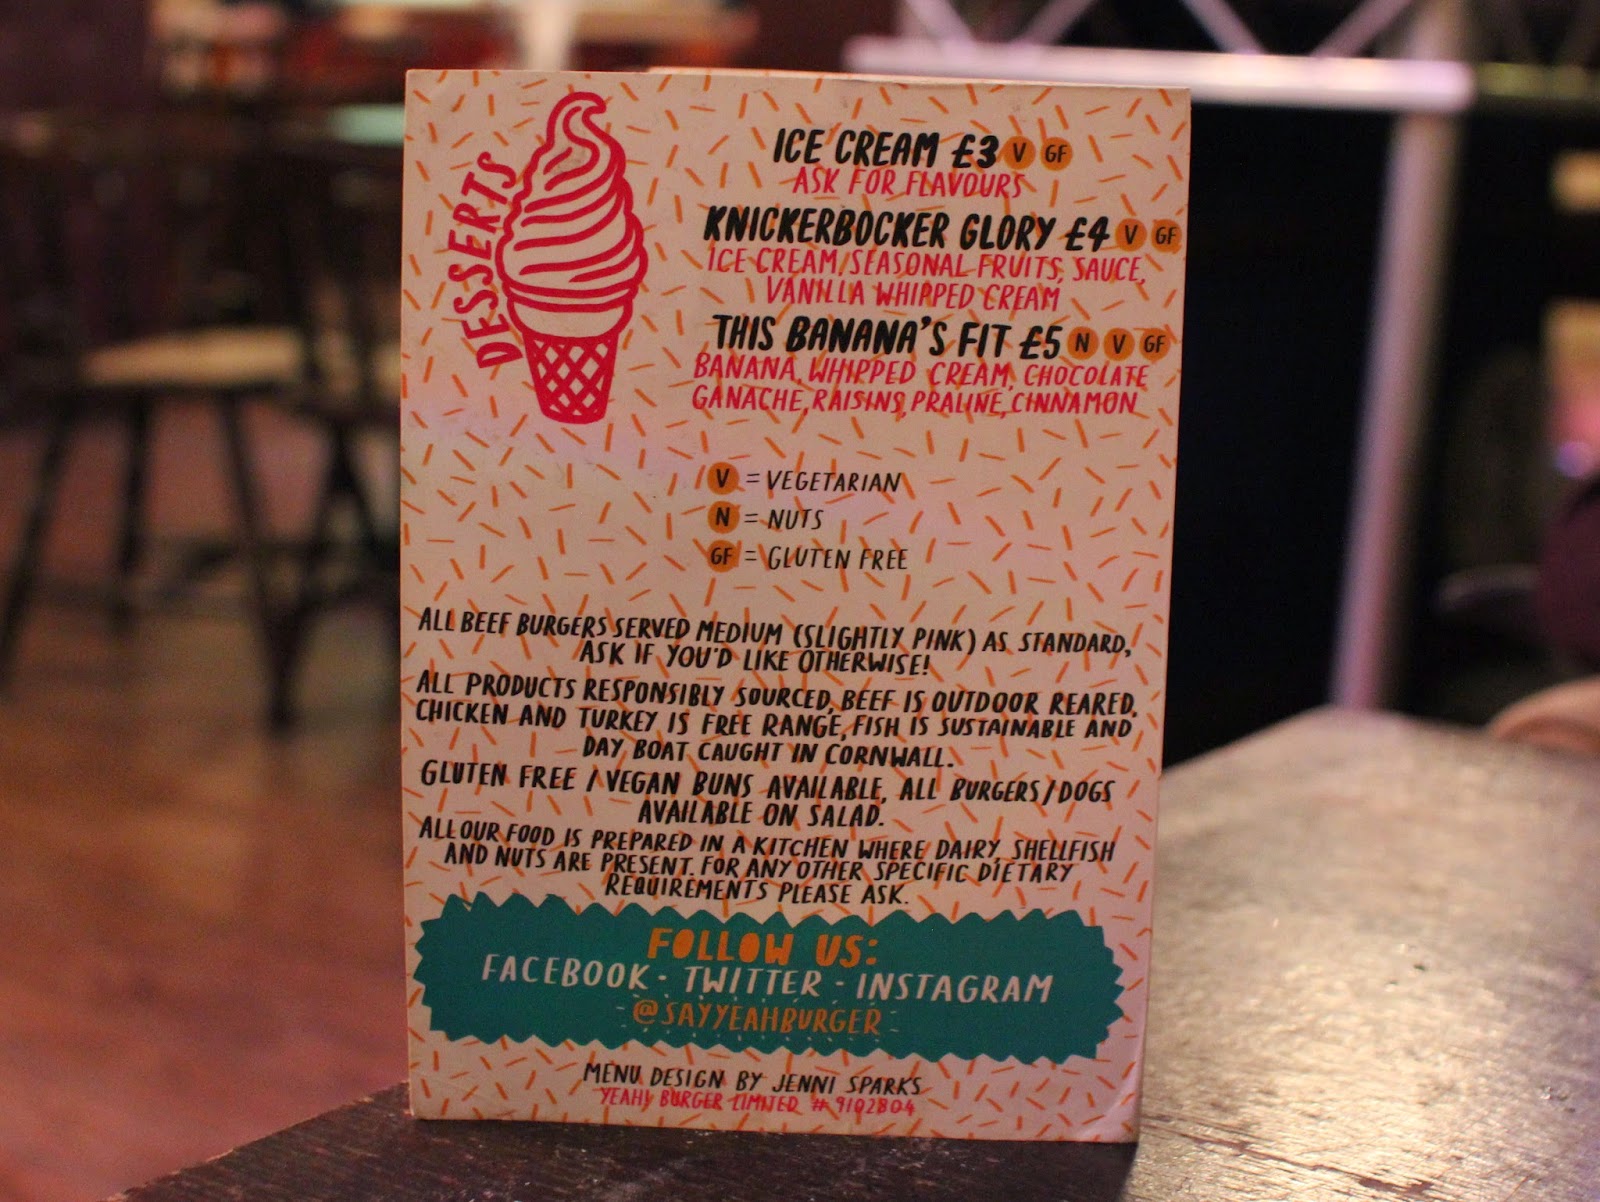 DESSERTS
ICE CREAM £3 V GF
ASK FOR FLAVOURS
KNICKERBOCKER GLORY £4 V GF
ICE CREAM, SEASONAL FRUITS, SAUCE,
VANILLA WHIPPED CREAM
THIS BANANA'S FIT £5 N V GF
BANANA, WHIPPED CREAM, CHOCOLATE
GANACHE, RAISINS, PRALINE, CINNAMON
V = VEGETARIAN
N = NUTS
GF = GLUTEN FREE
ALL BEEF BURGERS SERVED MEDIUM (SLIGHTLY PINK) AS STANDARD,
ASK IF YOU'D LIKE OTHERWISE!
ALL PRODUCTS RESPONSIBLY SOURCED, BEEF IS OUTDOOR REARED,
CHICKEN AND TURKEY IS FREE RANGE, FISH IS SUSTAINABLE AND
DAY BOAT CAUGHT IN CORNWALL.
GLUTEN FREE / VEGAN BUNS AVAILABLE, ALL BURGERS/DOGS
AVAILABLE ON SALAD.
ALL OUR FOOD IS PREPARED IN A KITCHEN WHERE DAIRY, SHELLFISH
AND NUTS ARE PRESENT. FOR ANY OTHER SPECIFIC DIETARY
REQUIREMENTS PLEASE ASK.
FOLLOW US:
FACEBOOK - TWITTER - INSTAGRAM
@SAYYEAHBURGER
MENU DESIGN BY JENNI SPARKS
YEAH! BURGER LIMITED # 9102804